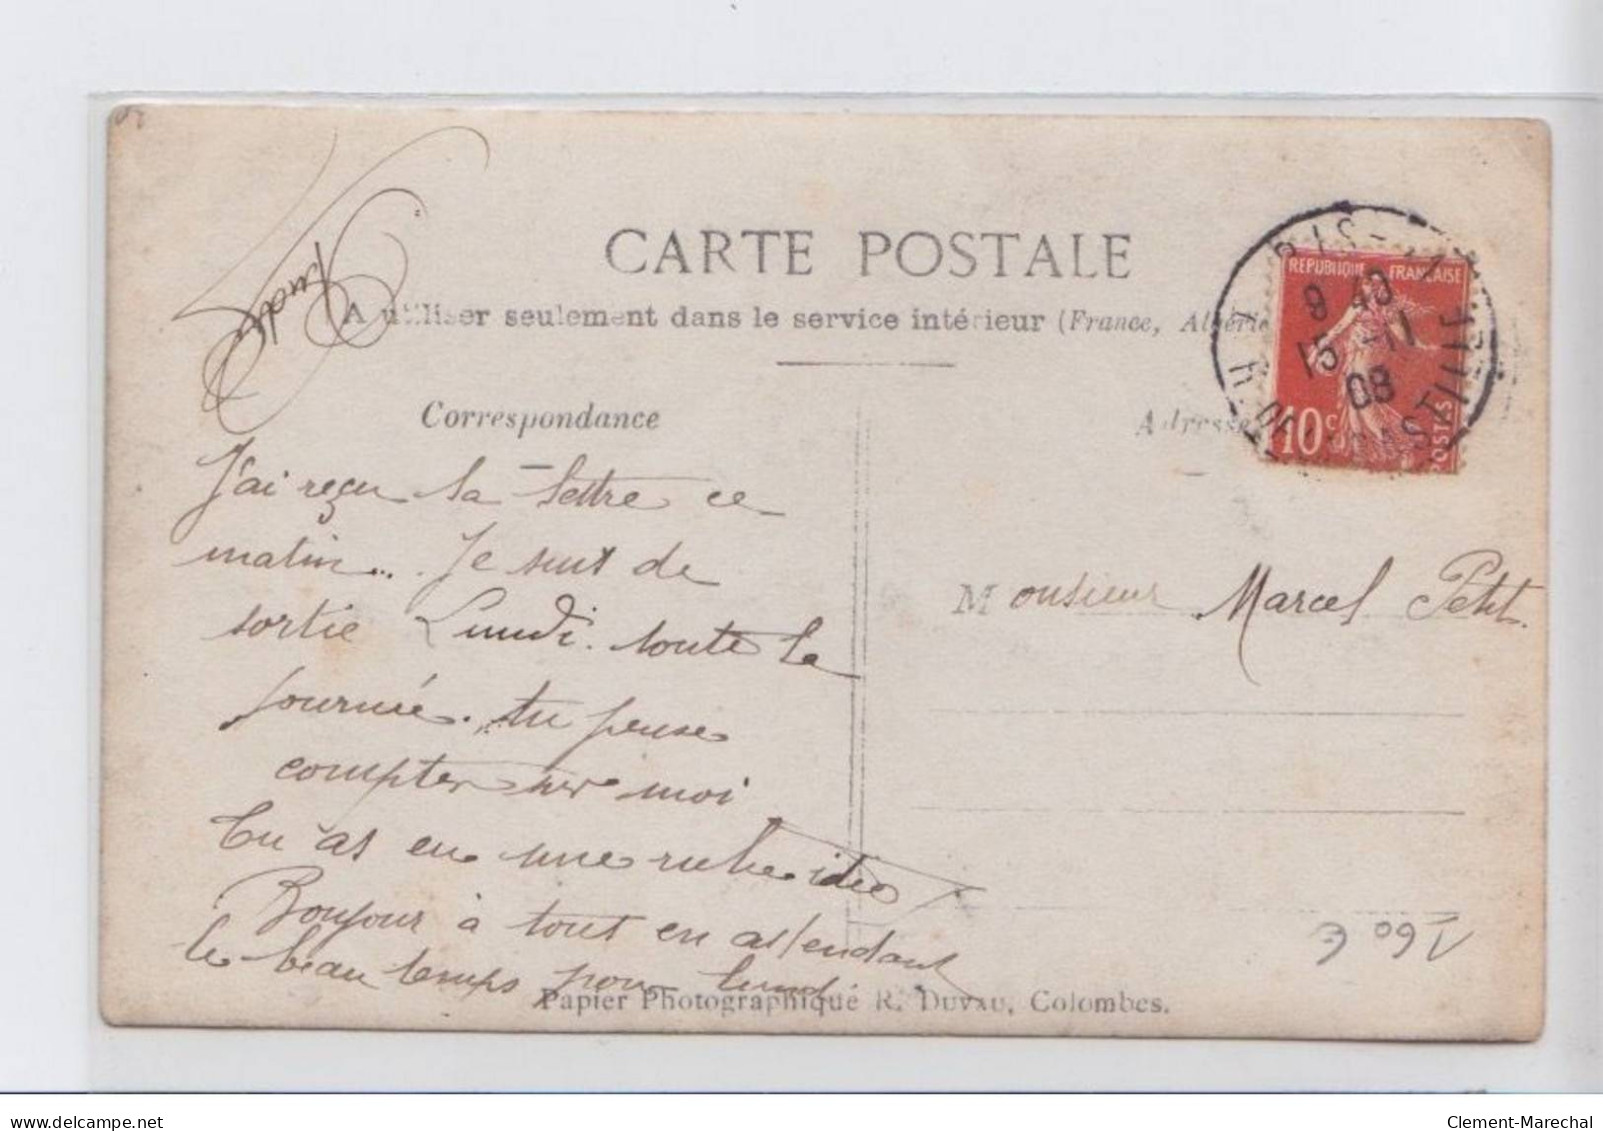 CARTE POSTALE
A utiliser seulement dans le service intérieur (France, Algérie
Correspondance
Adresse
REPUBLIQUE FRANÇAISE
10 c
POSTES
9 40
15 -11
08
J'ai reçu ta lettre ce
matin... Je suis de
sortie Lundi. toute la
journée. tu peuse
compter sur moi
tu as eu une riche idée
Bonjour à tout en attendant
le beau temps pour lundi
Monsieur Marcel Petit.
160 €
Papier Photographique R. Duvau, Colombes.
Clement-Marechal